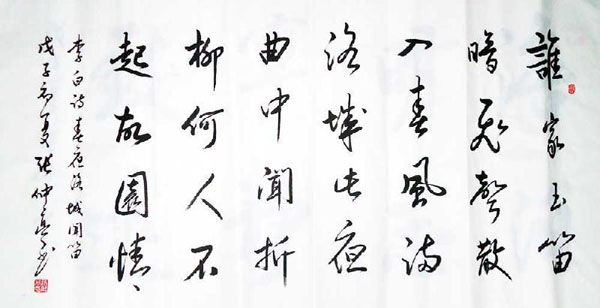 誰家玉笛
暗飛聲散
入春風滿
洛城此夜
曲中聞折
柳何人不
起故園情
李白詩春夜洛城聞笛
戊子初夏張仲書